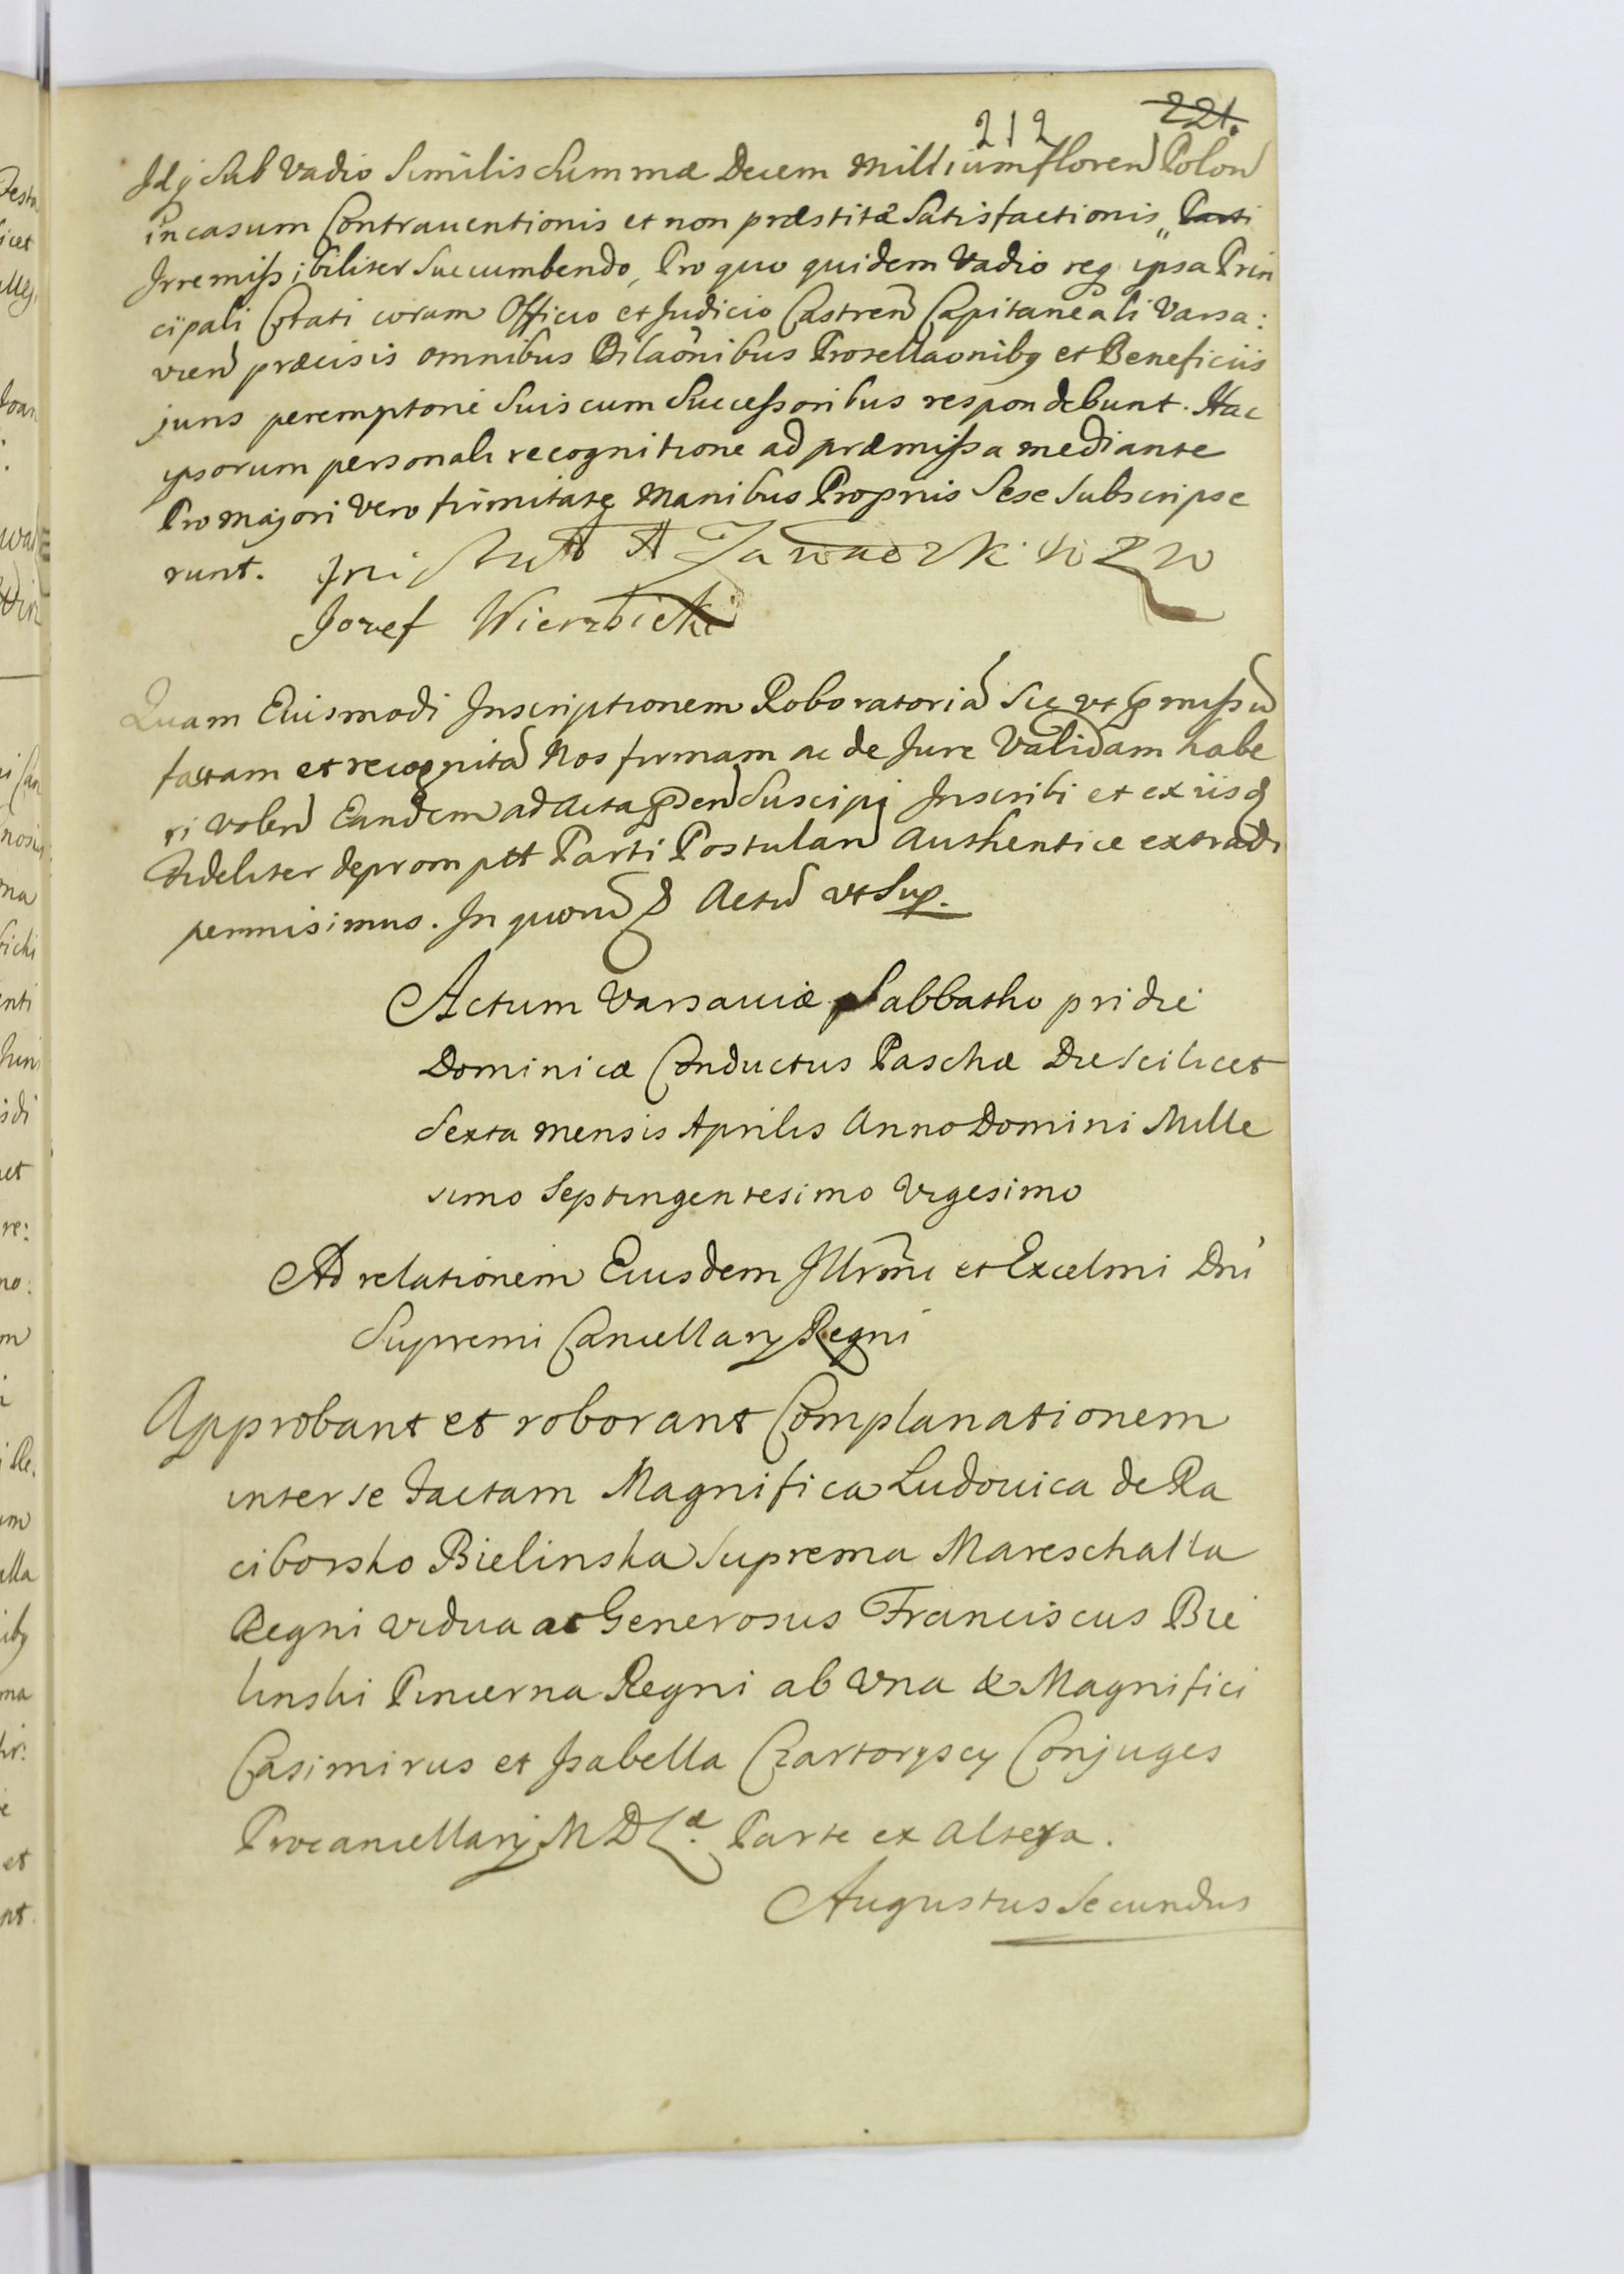 212 221.
Idq Sub Vadio Similis Summæ Decem Millium floren Polon
in casum Contrauentionis et non præstitæ Satisfactionis „ Parti
Irremissibiliter Succumbendo, Pro quo quidem Vadio req ipsa Prin
cipali Citati coram Officio et Judicio Castren Capitaneali Varsa:
vien præcisis omnibus Dilaonibus Prosellaonibq et Beneficiis
juris peremptorie Suis cum Successoribus respondebunt. Hac
ipsorum personali recognitione ad præmissa mediante
Pro majori Vero firmitate Manibus Propriis Sese Subscripse
runt.
Jozef Wierzbicki
Quam Eiusmodi Inscriptionem Roboratoria Sic ut pmissu
factam et recognita Nos firmam ac de Jure Validam habe
ri volen Eandem ad Acta pden Suscipi Inscribi et ex iisq
fideliter deprompt Parti Postulan Authentice extradi
permisimus. In quoru Actu ut Sup.
Actum Varsauiæ Sabbatho pridie
Dominicæ Conductus Paschæ Die Scilicet
Sexta mensis Aprilis Anno Domini Mille
simo Septingentesimo Vigesimo
Ad relationem Eiusdem Illrmi et Excelmi Dni
Supremi Cancellarij Regni
Approbant et roborant Complanationem
inter se factam Magnifica Ludouica de Ra
ciborsko Bielinska Suprema Mareschalla
Regni vidua ac Generosus Franciscus Bie
linski Pincerna Regni ab Vna & Magnifici
Casimirus et Isabella Czartoryscy Conjuges
Procancellarij M D L æ. Parte ex Altera.
Augustus Secundus